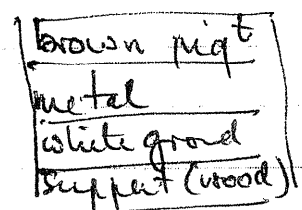 brown pigt
metal
white grond
Support (wood)